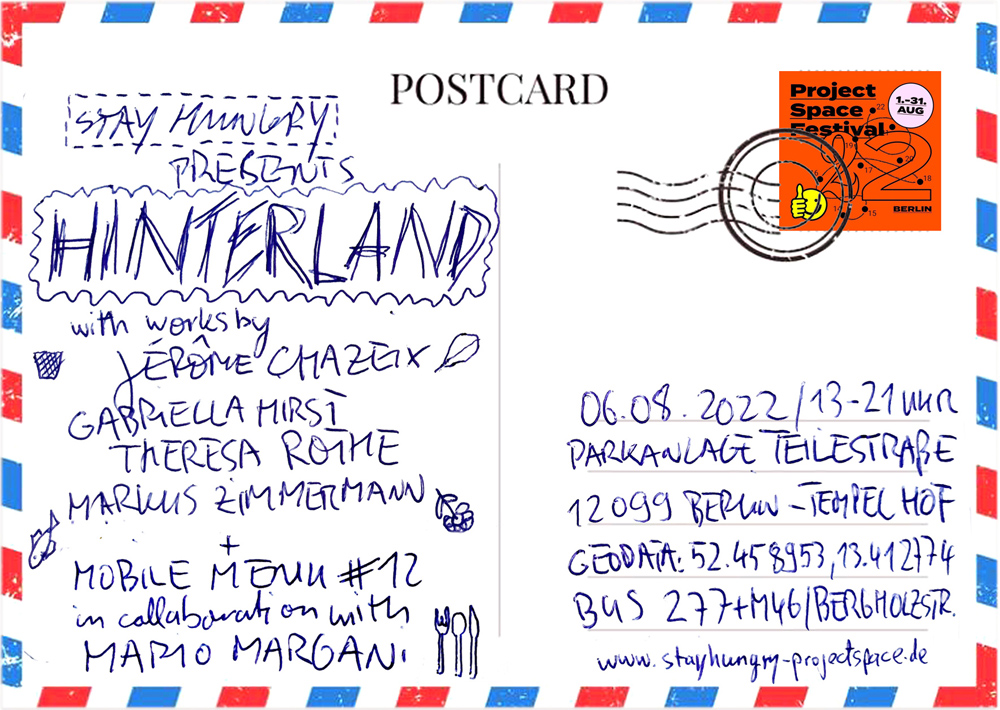 POSTCARD
STAY HUNGRY
PRESENTS
HINTERLAND
with works by
JÉRÔME CHAZEIX
GABRIELLA HIRST
THERESA ROTHE
MARKUS ZIMMERMANN
+
MOBILE MENU #12
in collaboration with
MARIO MARGANI
Project
Space
Festival
1.–31.
AUG
22
19
20
17
18
16
14
15
BERLIN
06.08.2022/13-21 UHR
PARKANLAGE TEILESTRAßE
12099 BERLIN-TEMPELHOF
GEODATA: 52.458953,13.412774
BUS 277+M46/BERGHOLZSTR.
www.stayhungry-projectspace.de